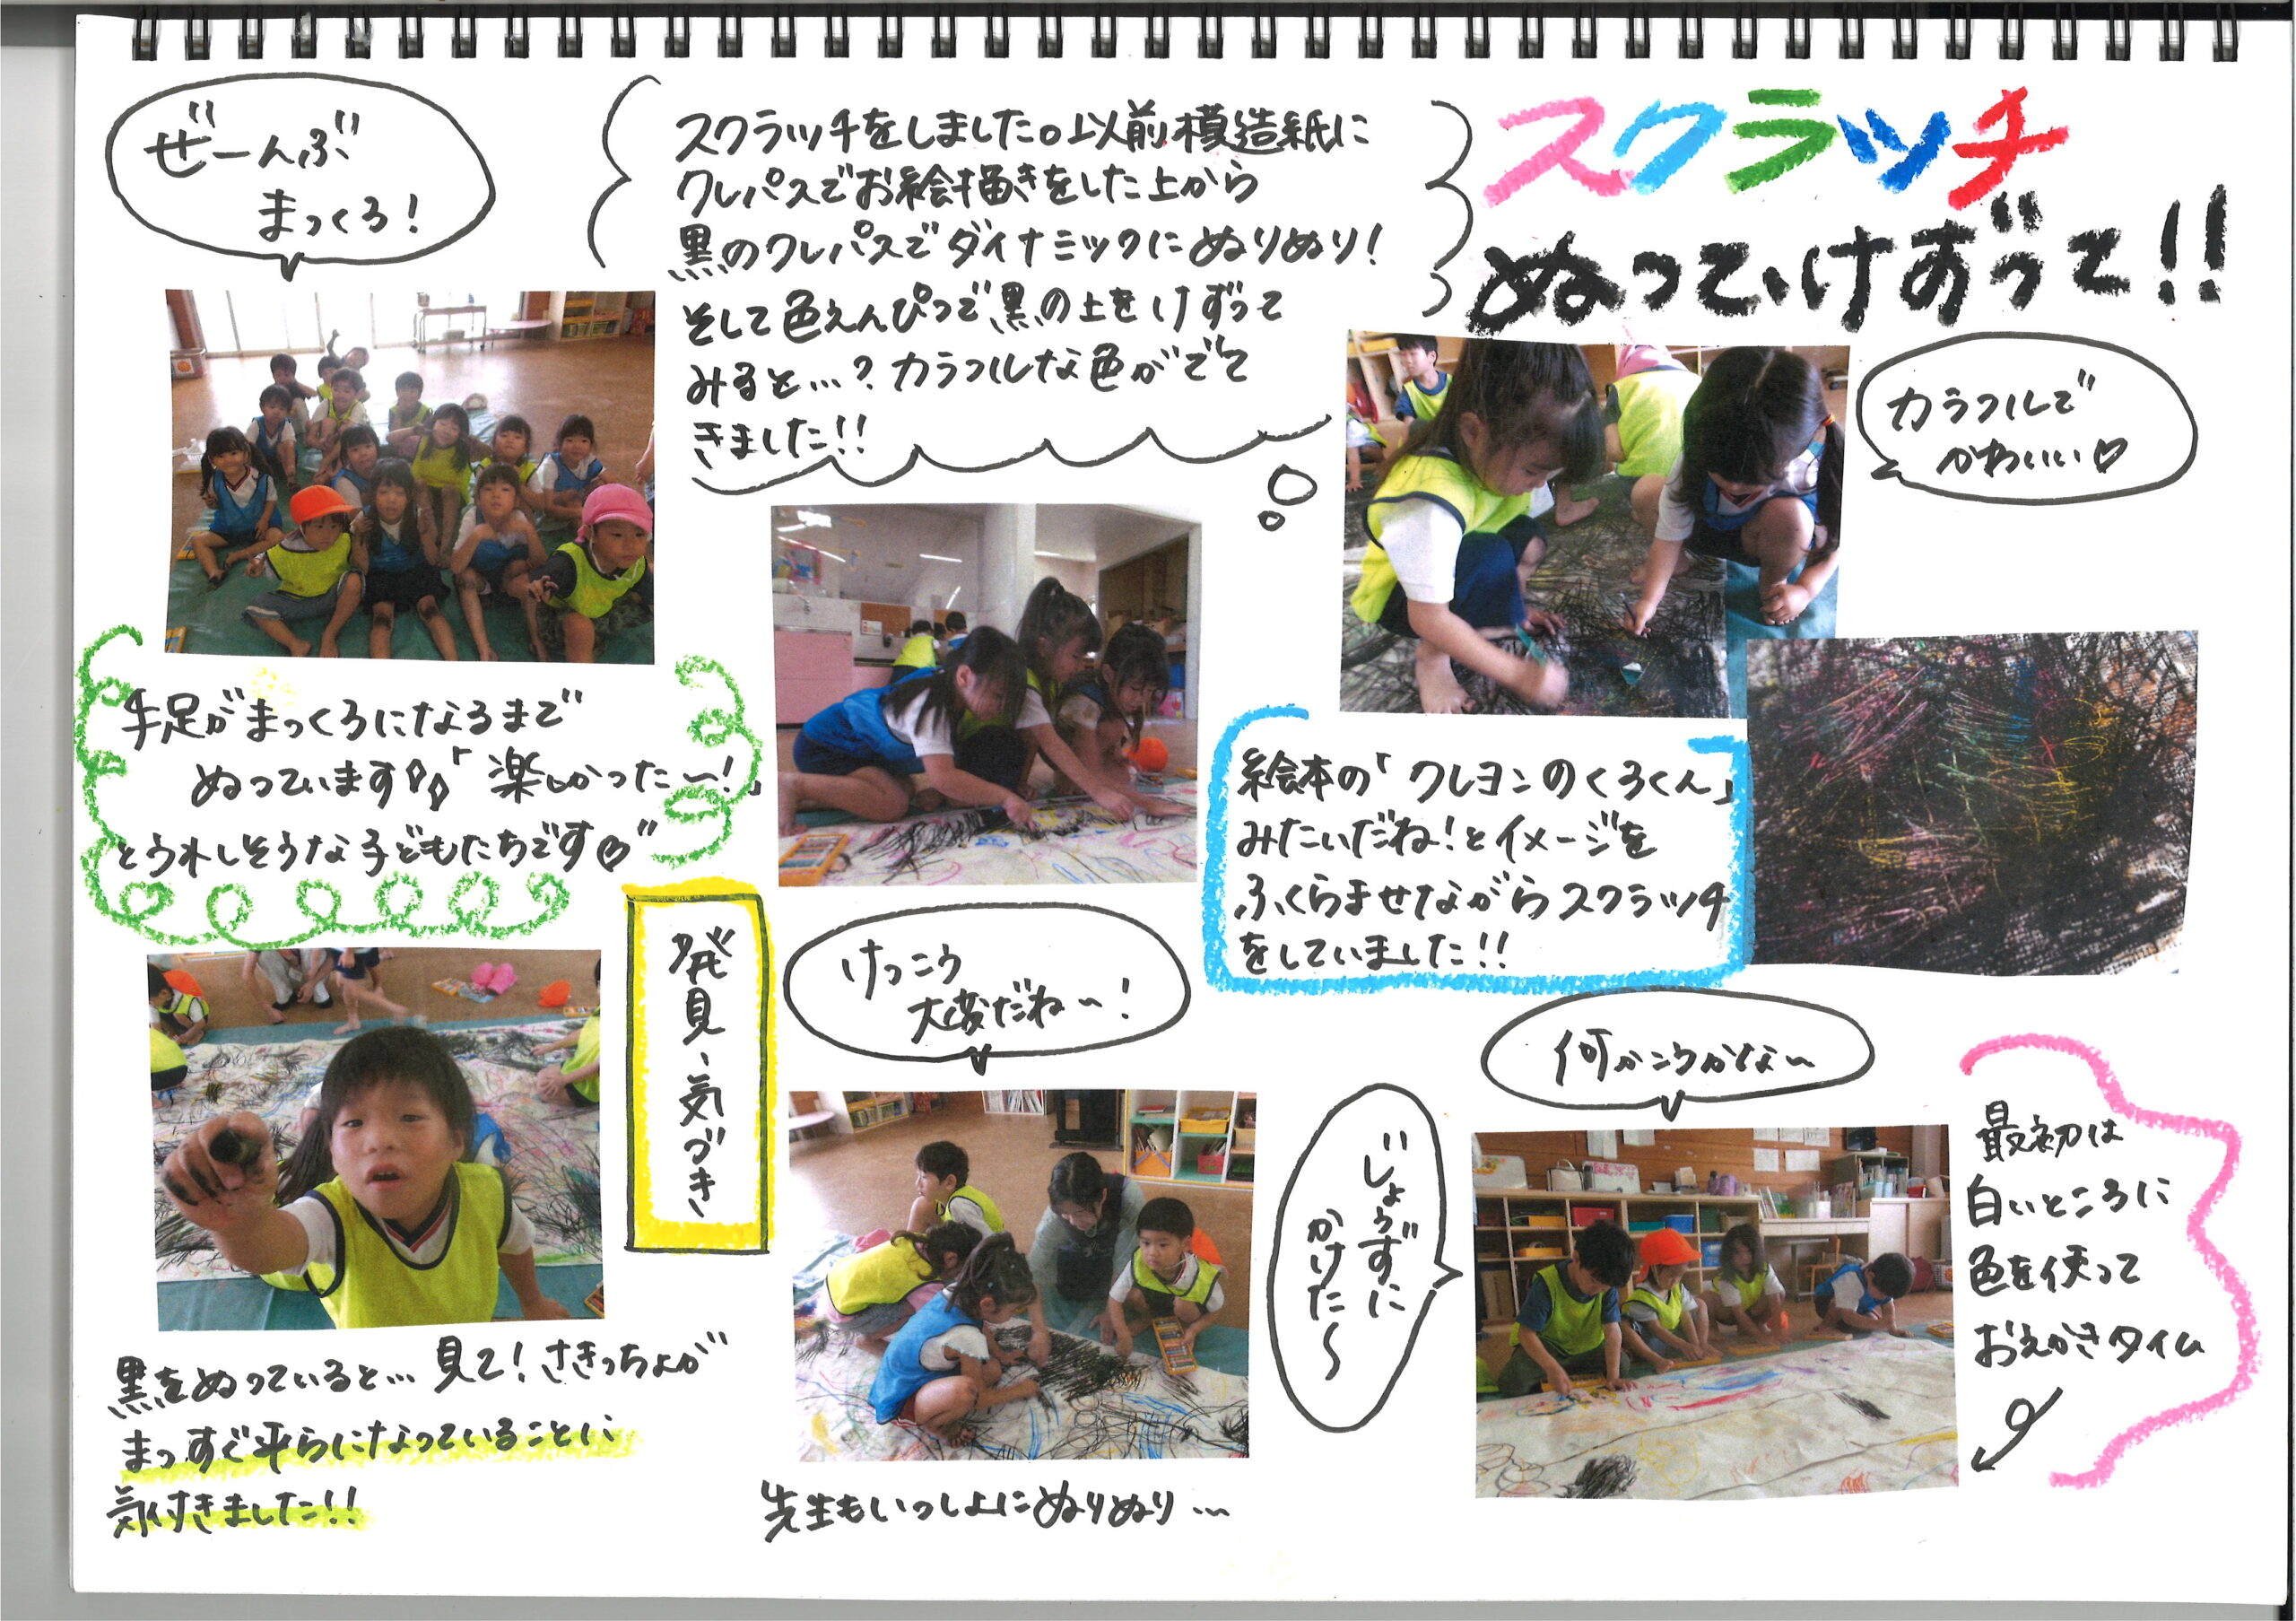 スクラッチ
ぬって、けずって!!
スクラッチをしました。以前模造紙に
クレパスでお絵描きをした上から
黒のクレパスでダイナミックにぬりぬり!
そして色えんぴつで黒の上をけずって
みると…?カラフルな色がでて
きました!!
ぜーんぶ
まっくろ!
カラフルで
かわいい♡
手足がまっくろになるまで
ぬっています「楽しかった〜!」
とうれしそうな子どもたちです♡
絵本の「クレヨンのくろくん」
みたいだね!とイメージを
ふくらませながらスクラッチ
をしていました!!
発見、気づき
けっこう
大変だね〜!
何かこうかな〜
じょうずに
かけた〜
最初は
白いところに
色を使って
おえかきタイム
黒をぬっていると…見て!さきっちょが
まっすぐ平らになっていることに
気付きました!!
先生もいっしょにぬりぬり…